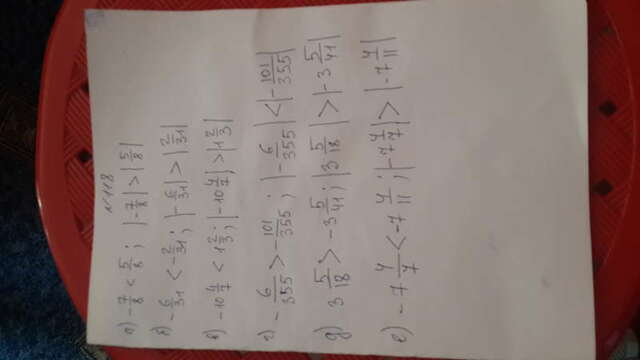 №118
а) -7/8 < 5/8; |-7/8| > |5/8|
б) -6/31 < -2/31; |-6/31| > |2/31|
в) -10 4/7 < 1 2/3; |-10 4/7| > |1 2/3|
г) -6/355 > -101/355; |-6/355| < |-101/355|
д) 3 5/18 > -3 5/41; |3 5/18| > |-3 5/41|
е) -7 4/7 < -7 4/11; |-7 4/7| > |-7 4/11|